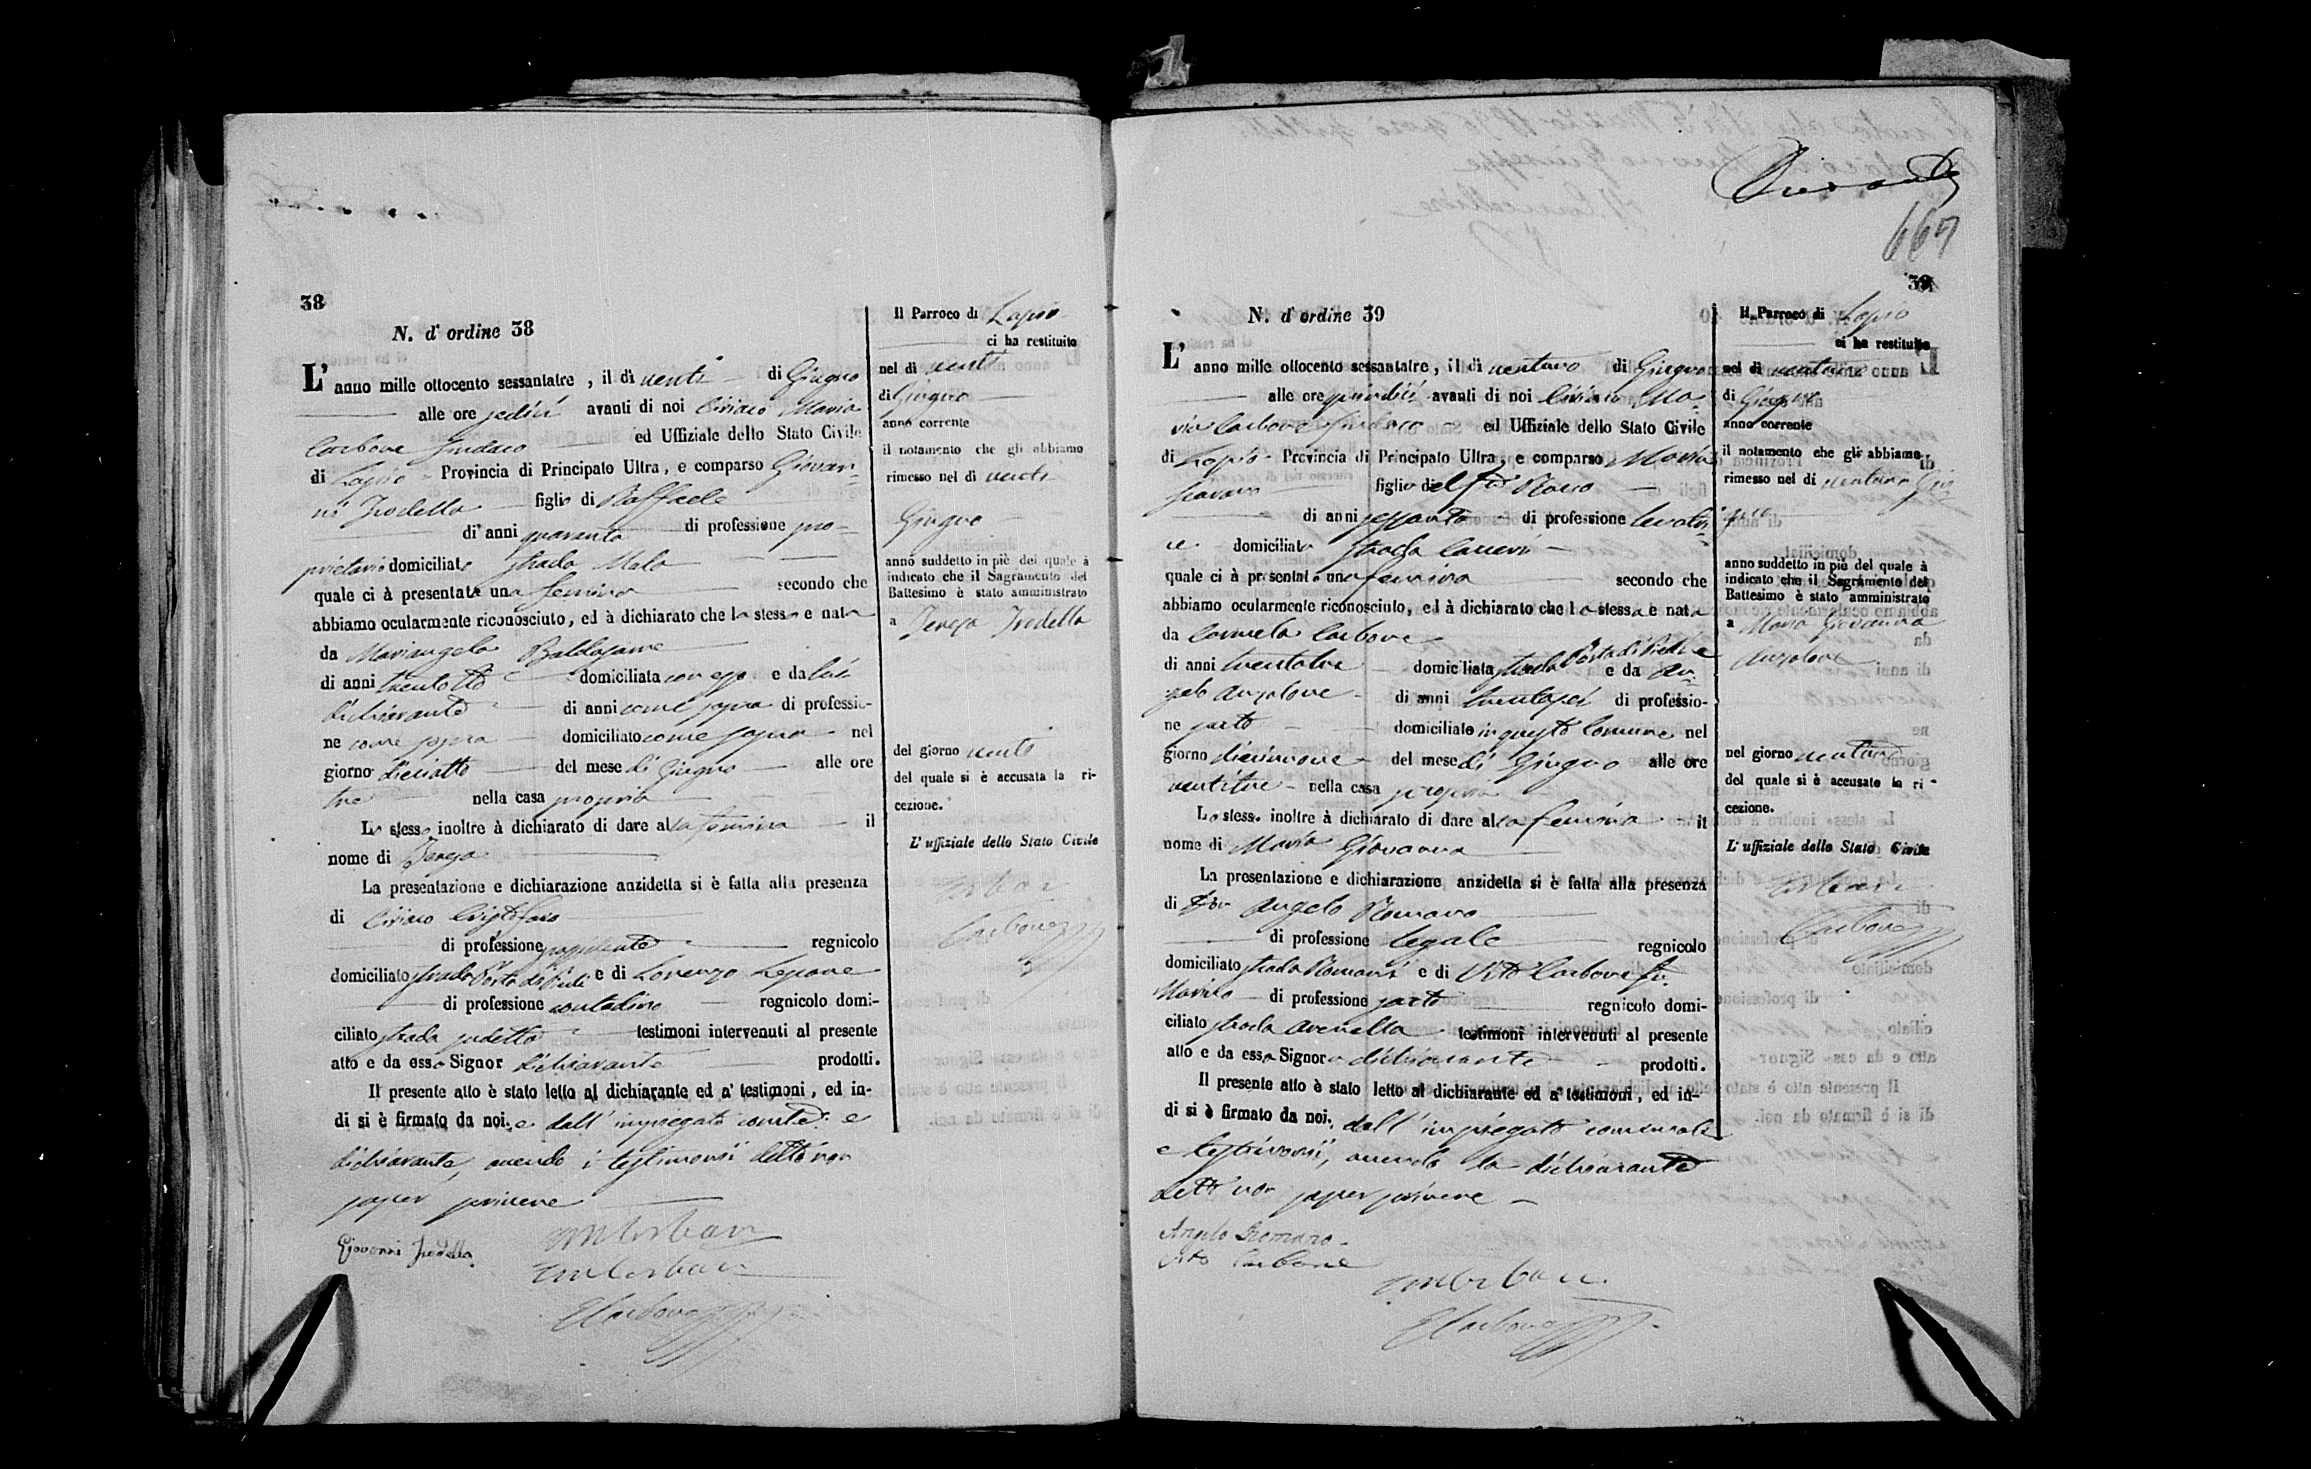 38
N. d' ordine 38
L' anno mille ottocento sessantatre, il dì venti di Giugno
alle ore sedici avanti di noi Ciriaco Maria
Carbone Sindaco ed Uffiziale dello Stato Civile
di Lapio Provincia di Principato Ultra, e comparso Giovan-
ni Trodella figlio di Raffaele
di anni quaranta di professione pro-
prietario domiciliato strada Mala
quale ci à presentata una femina secondo che
abbiamo ocularmente riconosciuto, ed à dichiarato che la stessa e nata
da Mariangela Baldassarre
di anni trentotto domiciliata con esso e da lui
dichiarante di anni come sopra di professio-
ne come sopra domiciliato come sopra nel
giorno dieciotto del mese di Giugno alle ore
tre nella casa propria
Lo stesso inoltre à dichiarato di dare alla femina il
nome di Teresa
La presentazione e dichiarazione anzidetta si è fatta alla presenza
di Ciriaco Cristofaro
di professione regnicolo
domiciliato strada Porta di Piedi e di Lorenzo Lepore
di professione contadino regnicolo domi-
ciliato strada sudetta testimoni intervenuti al presente
atto e da esso Signor dichiarante prodotti.
Il presente atto è stato letto al dichiarante ed a' testimoni, ed in-
di si è firmato da noi, e dall' impiegato comle. e
dichiarante, avendo i testimonii detto non
saper scrivere
Giovanni Trodella
Carbone
Il Parroco di Lapio
ci ha restituito
nel dì venti
di Giugno
anno corrente
il notamento che gli abbiamo
rimesso nel di venti
Giugno
anno suddetto in piè del quale à
indicato che il Sagramento del
Battesimo è stato amministrato
a Teresa Trodella
del giorno venti
del quale si è accusata la ri-
cezione.
L' uffiziale dello Stato Civile
Carbone
667
39
N. d' ordine 39
L' anno mille ottocento sessantatre, il dì ventuno di Giugno
alle ore quindici avanti di noi Ciriaco Ma-
ria Carbone Sindaco ed Uffiziale dello Stato Civile
di Lapio Provincia di Principato Ultra, e comparso Maria
figlia del fu Rocco
di anni sessanta di professione levatri-
ce domiciliata strada Carreri
quale ci à presentato una femina secondo che
abbiamo ocularmente riconosciuto, ed à dichiarato che la stessa e nata
da Carmela Carbone
di anni trentatre domiciliata strada Porta di Piedi e da An-
gelo Anzalone di anni trentasei di professio-
ne sarto domiciliato in questo Comune nel
giorno diecinnove del mese di Giugno alle ore
ventitre nella casa propria
La stessa inoltre à dichiarato di dare alla femina il
nome di Maria Giovanna
La presentazione e dichiarazione anzidetta si è fatta alla presenza
di Angelo Romano
di professione legale regnicolo
domiciliato strada Romani e di Vito Carbone fu
di professione sarto regnicolo domi-
ciliato strada Avenella testimoni intervenuti al presente
atto e da essa Signora dichiarante prodotti.
Il presente atto è stato letto al dichiarante ed a' testimoni, ed in-
di si è firmato da noi, dall' impiegato comunale
e testimonii, avendo la dichiarante
detto non saper scrivere
Angelo Romano
Vito Carbone
Carbone
Il Parroco di Lapio
ci ha restituito
nel dì ventuno
di Giugno
anno corrente
il notamento che gli abbiamo
rimesso nel di ventuno Giu
gno
anno suddetto in piè del quale à
indicato che il Sagramento del
Battesimo è stato amministrato
a Maria Giovanna
Anzalone
nel giorno ventuno
del quale si è accusato la ri-
cezione.
L' uffiziale dello Stato Civile
Carbone